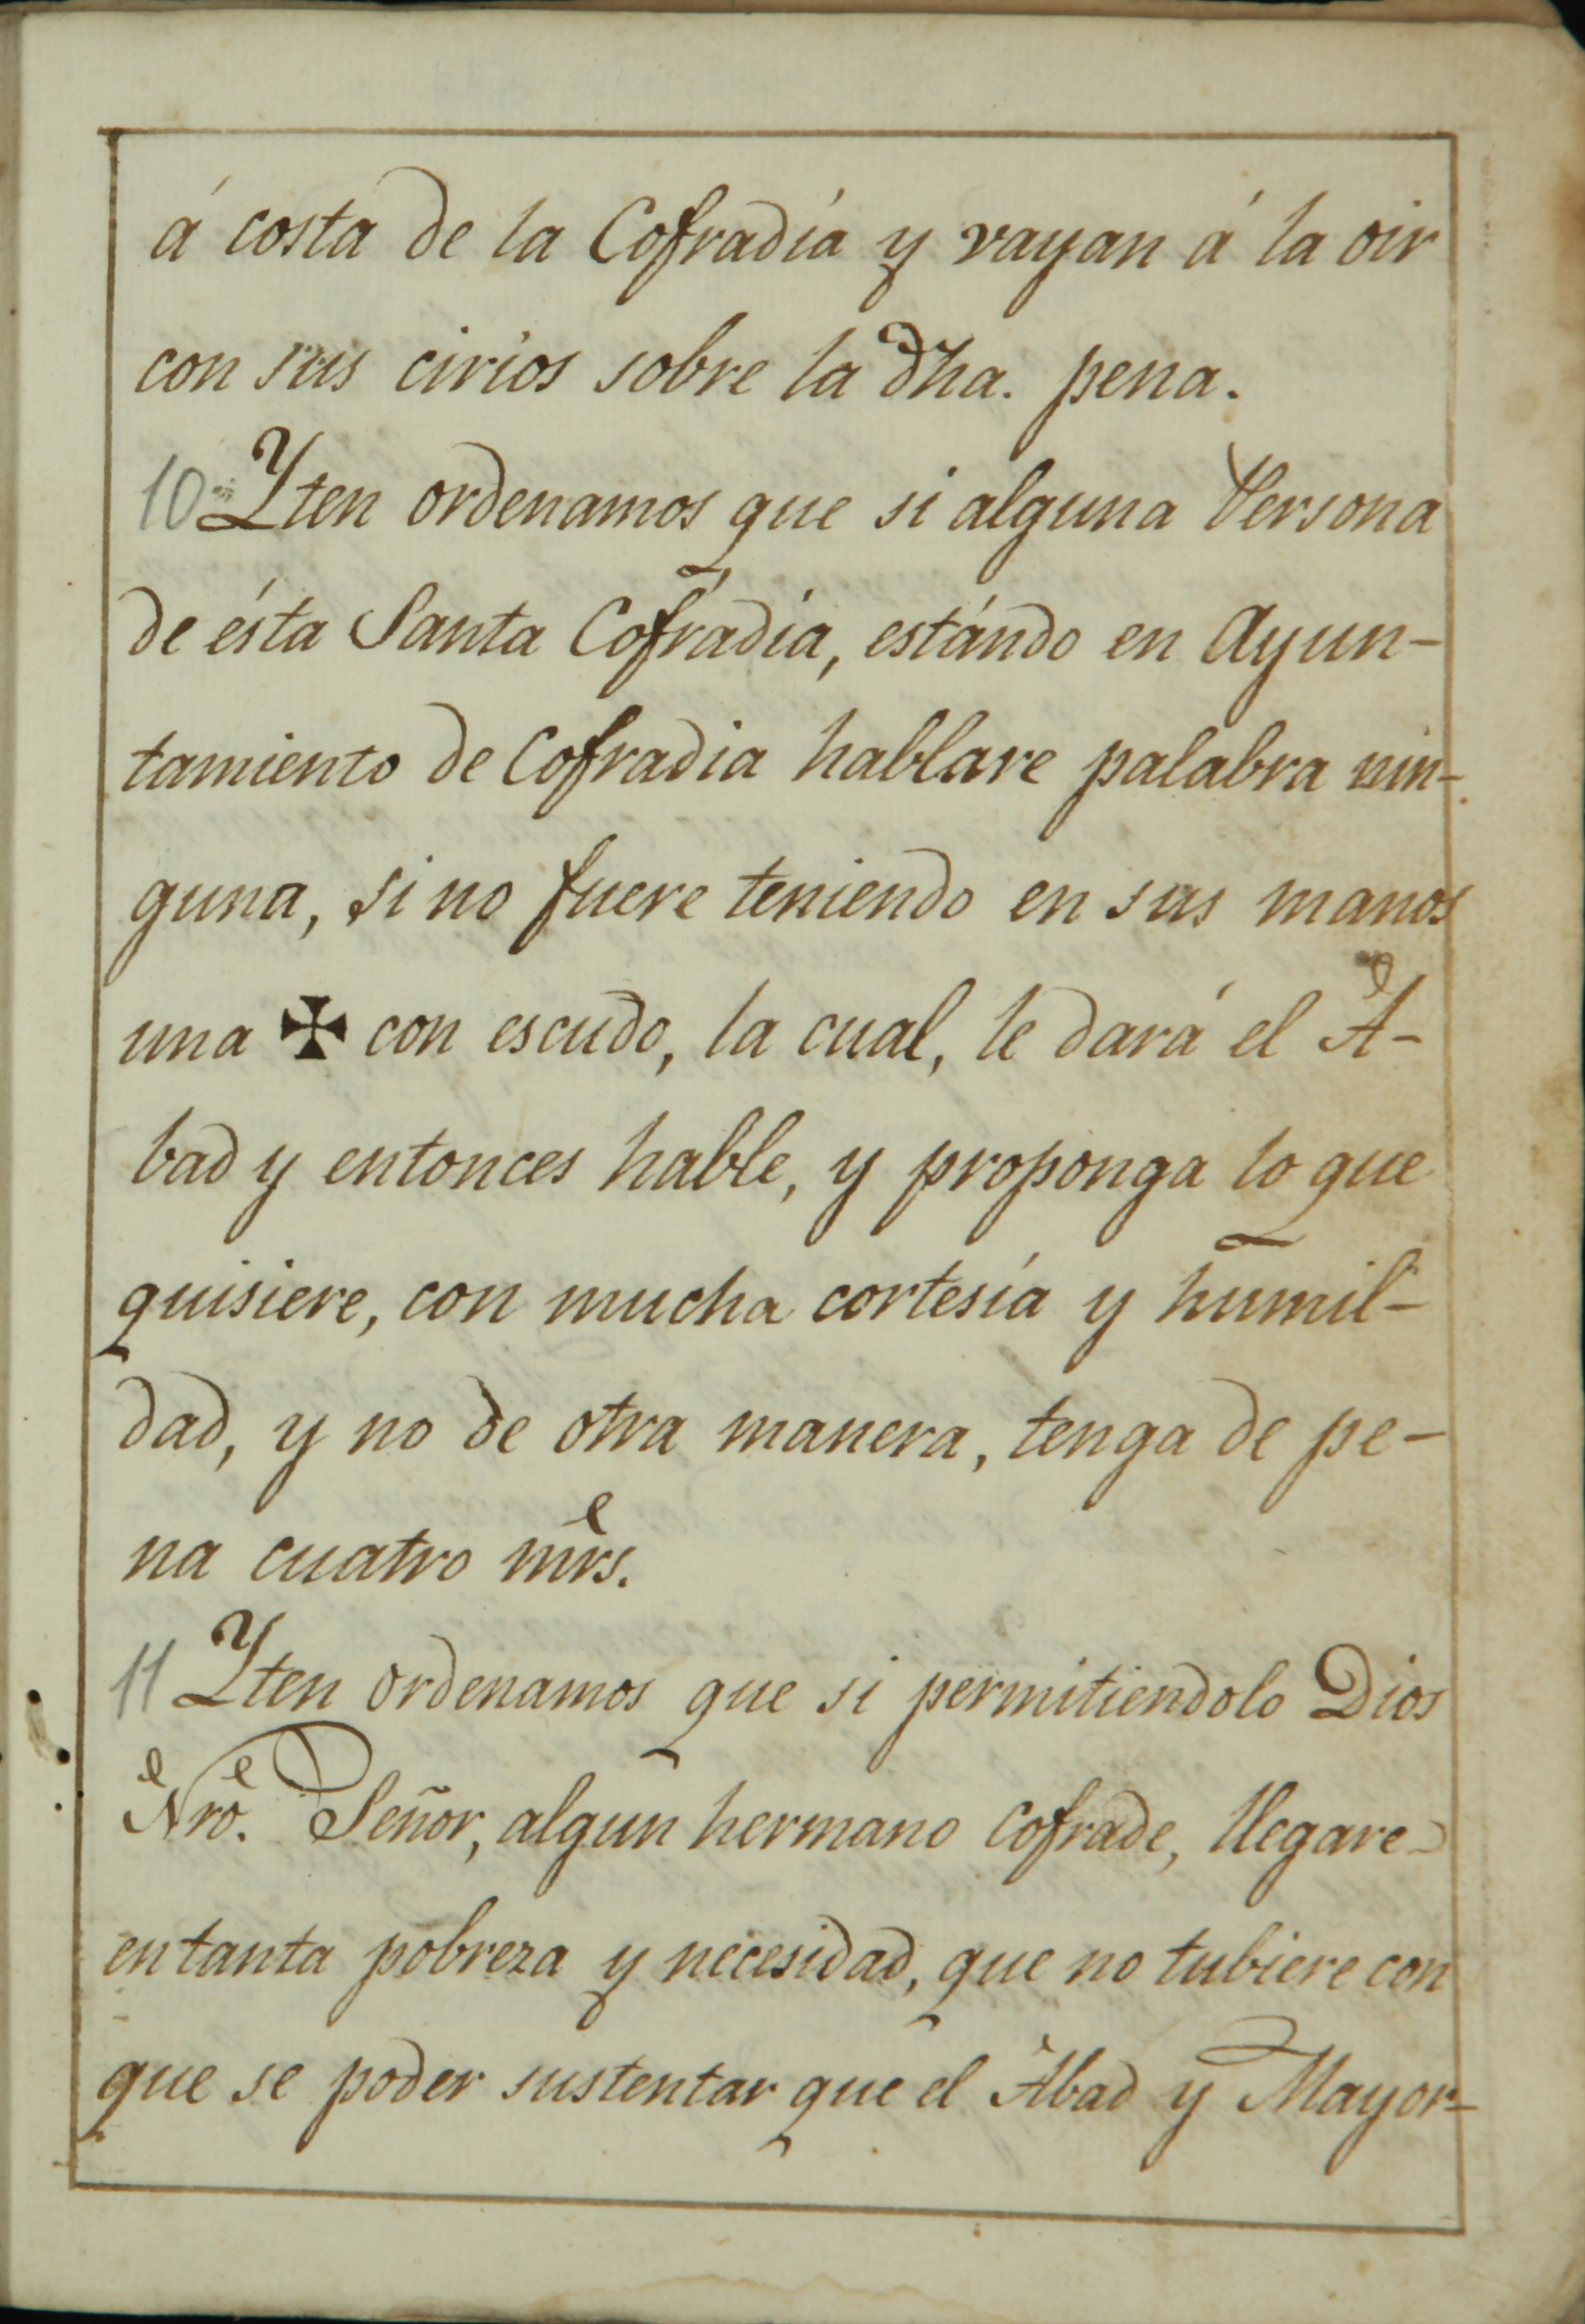 á costa de la Cofradía y vayan á la oir
con sus cirios sobre la dha. pena.
10 Yten ordenamos que si alguna Persona
de ésta Santa Cofradía, estándo en Ayun-
tamiento de Cofradia hablare palabra nin-
guna, si no fuere teniendo en sus manos
una ✠ con escudo, la cual, le dará el A-
bad y entonces hable, y proponga lo que
quisiere, con mucha cortesía y humil-
dad, y no de otra manera, tenga de pe-
na cuatro mrs.
11 Yten ordenamos que si permitiendolo Dios
Nro. Señor, algun hermano Cofrade, llegare
en tanta pobreza y necesidad, que no tubiere con
que se poder sustentar que el Abad y Mayor-